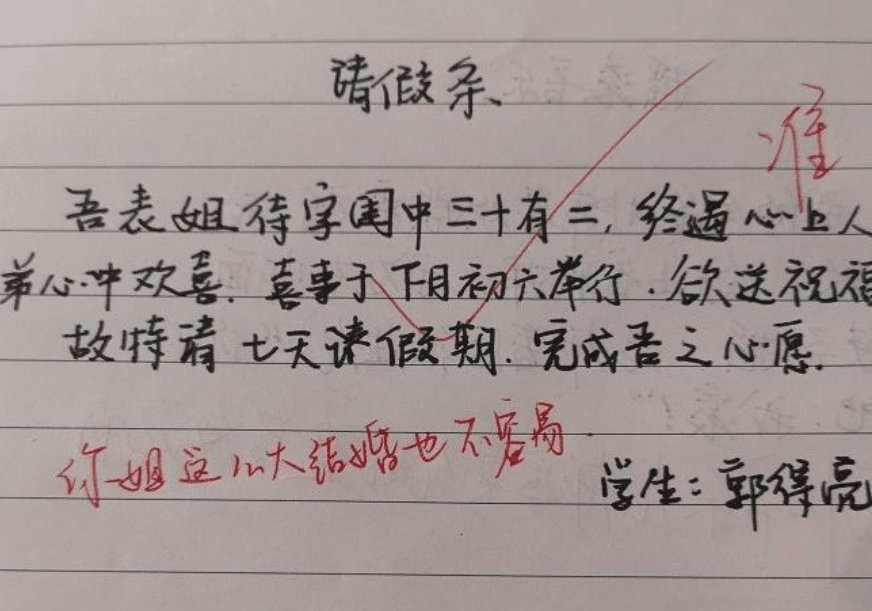 请假条、
准
吾表姐待字闺中三十有二，终遇心上人
弟心中欢喜．喜事于下月初六举行．欲送祝福
故特请七天请假期．完成吾之心愿．
你姐这么大结婚也不容易．
学生：郭得亮